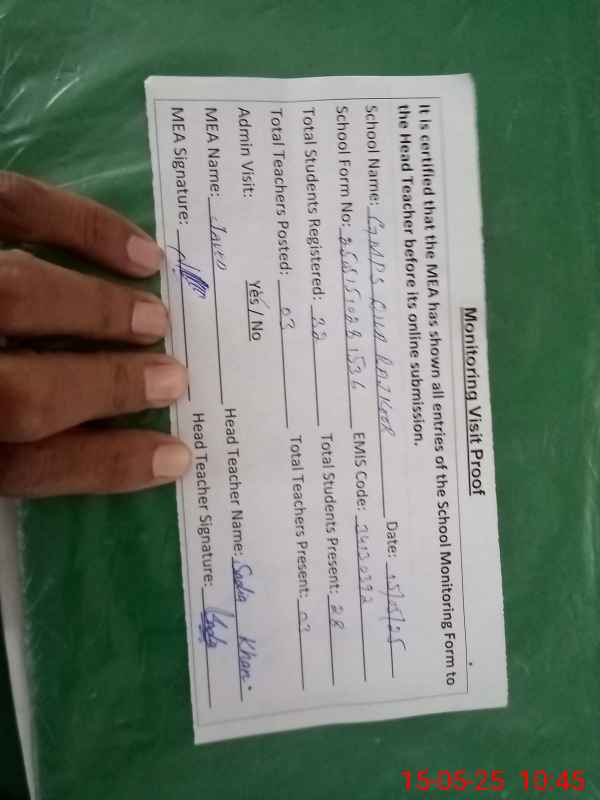 Monitoring Visit Proof
It is certified that the MEA has shown all entries of the School Monitoring Form to
the Head Teacher before its online submission.
School Name: GGMPS Date: 15/05/25
School Form No: EMIS Code: 34130392
Total Students Registered: 32 Total Students Present: 28
Total Teachers Posted: 03 Total Teachers Present: 03
Admin Visit: Yes / No
MEA Name: Javed Head Teacher Name: Sadia Khan.
MEA Signature: Head Teacher Signature:
15-05-25 10:45